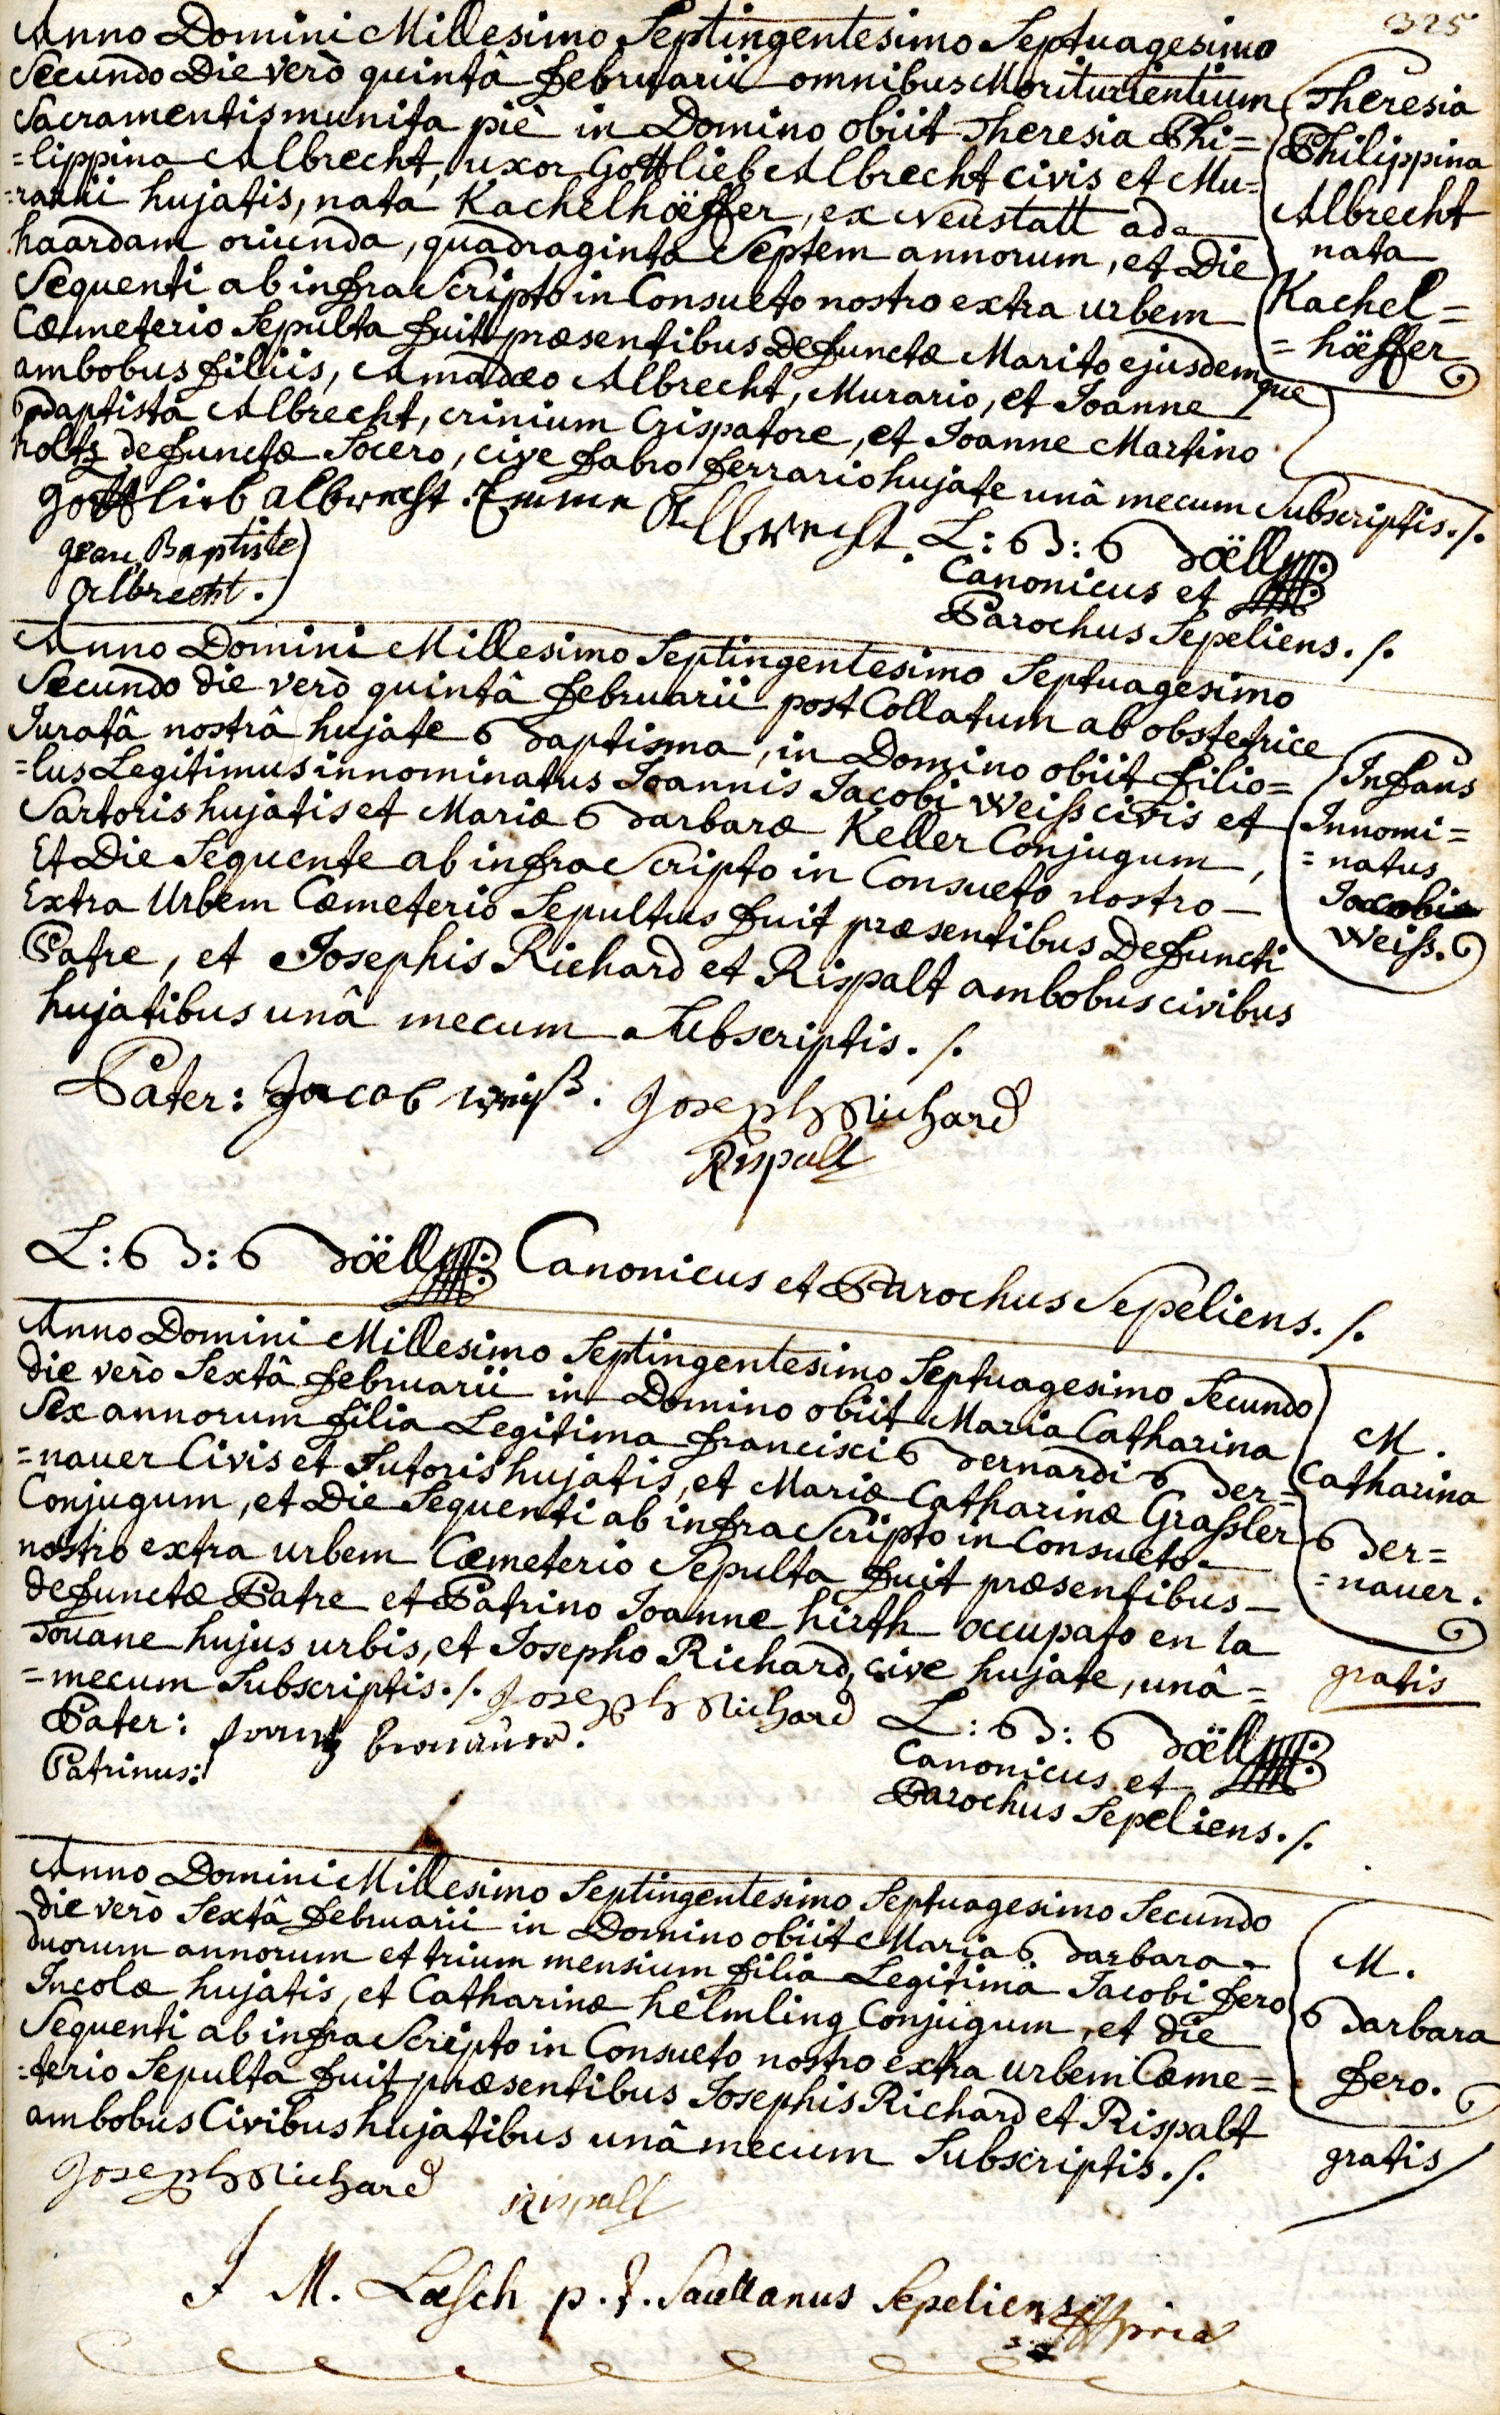 325
Anno Domini Millesimo Septingentesimo Septuagesimo
Secundo Die verò quintâ februarii omnibus Moriturientium
Sacramentis munita piè in Domino obiit Theresia Phi=
=lippina Albrecht, uxor Gottlieb Albrecht civis et Mu=
=rarii hujatis, nata Kachelhöeffer, ex Neustatt ad
haardam oriunda, quadraginta Septem annorum, et Die
Sequenti ab infra Scripto in Consueto nostro extra urbem
Cœmeterio Sepulta fuit præsentibus Defunctæ Marito ejusdemque
ambobus filiis, Amadæo Albrecht, Murario, et Joanne
Baptistâ Albrecht, crinium Crispatore, et Joanne Martino
holtz defunctæ Socero, cive fabro ferrario hujate unâ mecum Subscriptis./.
Theresia
Philippina
Albrecht
nata
Kachel=
=höeffer
Gottlieb Albrecht
Albrecht.
Jean Baptiste
Albrecht.
L: B: Boëll
Canonicus et
Parochus Sepeliens./.
Anno Domini Millesimo Septingentesimo Septuagesimo
Secundo die verò quintâ februarii post Collatum ab obstetrice
Juratâ nostrâ hujate Baptisma, in Domino obiit filio=
=lus Legitimus innominatus Joannis Jacobi Weiss civis et
Sartoris hujatis et Mariæ Barbaræ Keller Conjugum,
Et Die Sequente ab infra Scripto in Consueto nostro
Extra Urbem Cœmeterio Sepultus fuit præsentibus Defuncti
Patre, et Josephis Richard et Rispalt ambobus civibus
hujatibus unâ mecum Subscriptis./.
Infans
Innomi=
=natus
Jacobi
Weiss.
Pater: Jacob weiß. Joseph Richard
Rispalt
L: B: Boëll Canonicus et Parochus Sepeliens./.
Anno Domini Millesimo Septingentesimo Septuagesimo Secundo
die verò Sextâ februarii in Domino obiit Maria Catharina
Sex annorum filia Legitima francisci Bernardi Ber=
=nauer Civis et Sutoris hujatis, et Mariæ Catharinæ Grassler
Conjugum, et Die Sequenti ab infra Scripto in Consueto
nostro extra urbem Cœmeterio Sepulta fuit præsentibus
defunctæ Patre et Patrino Joanne hirth occupato en la
Douane hujus urbis, et Josepho Richard, cive hujate, unâ=
=mecum Subscriptis./. Joseph Richard
M.
Catharina
Ber=
=nauer.
gratis
Pater: frantz
Patrinus:
L: B: Boëll
Canonicus et
Parochus Sepeliens./.
Anno Domini Millesimo Septingentesimo Septuagesimo Secundo
die verò Sextâ februarii in Domino obiit Maria Barbara
duorum annorum et trium mensium filia Legitima Jacobi fero
Incolæ hujatis, et Catharinæ helmling Conjugum, et die
Sequenti ab infra Scripto in Consueto nostro extra urbem Cœme=
=terio Sepulta fuit præsentibus Josephis Richard et Rispalt
ambobus Civibus hujatibus unâ mecum Subscriptis./.
M.
Barbara
fero.
gratis
Joseph Richard Rispalt
J M. Lœsch p. t. Sacellanus Sepeliens